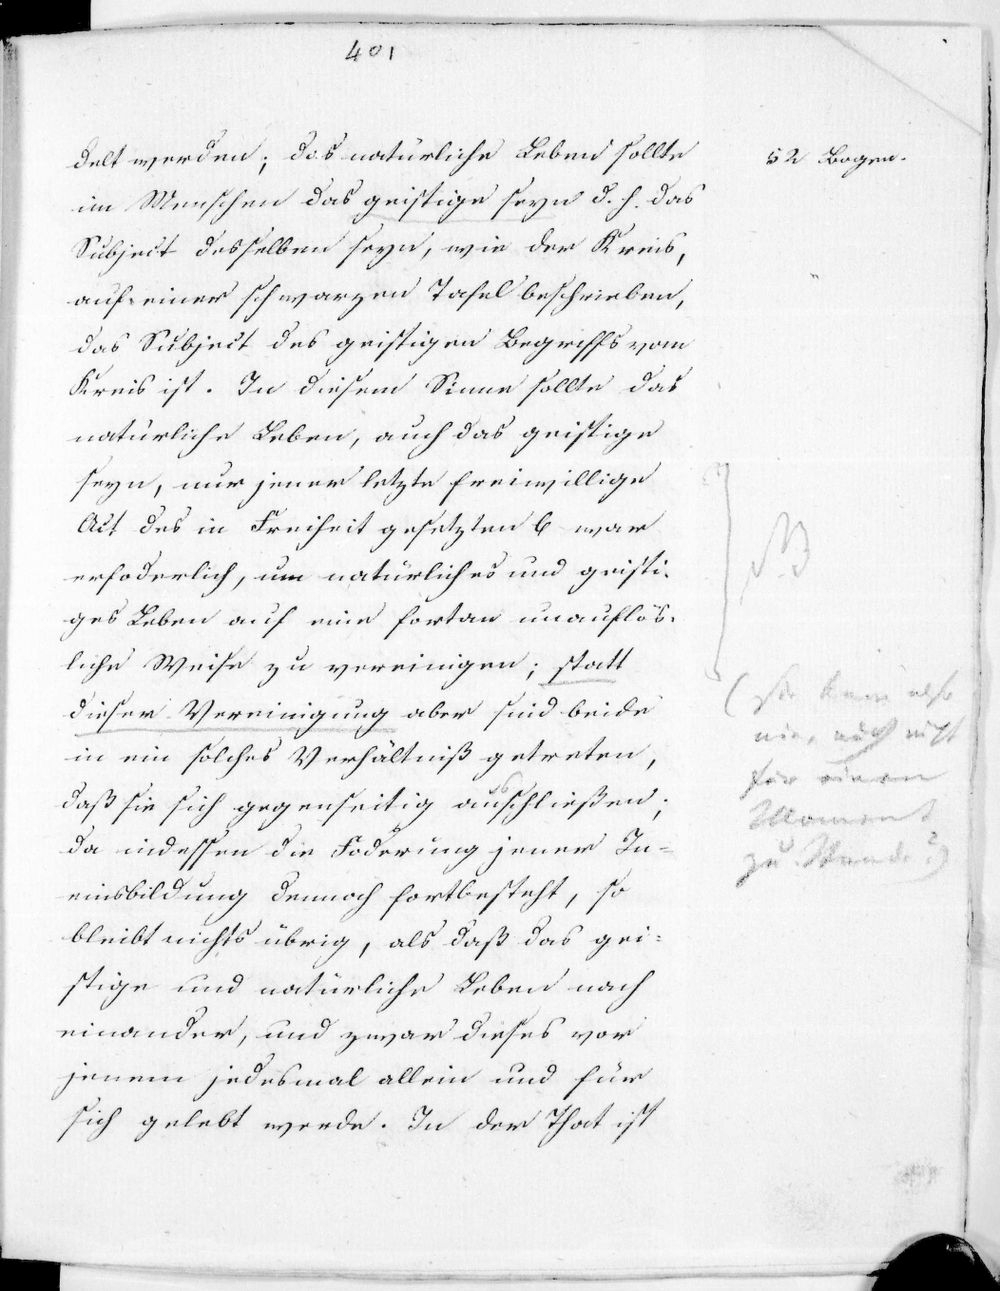 401
delt werden; das natürliche Leben sollte
52 Bogen.
im Menschen das geistige seyn d. h. das
Subject desselben seyn, wie der Kreis,
auf einer schwarzen Tafel beschrieben,
das Subject des geistigen Begriffs vom
Kreis ist. In diesem Sinne sollte das
natürliche Leben, auch das geistige
seyn, nur jener letzte freiwillige
Act des in Freiheit gesetzten b war
erfoderlich, um natürliches und geisti-
ges Leben auf eine fortan unauflös-
liche Weise zu vereinigen; statt
dieser Vereinigung aber sind beide
in ein solches Verhältniß getreten,
daß sie sich gegenseitig ausschließen;
da indessen die Foderung jener In=
einsbildung dennoch fortbesteht, so
bleibt nichts übrig, als daß das gei=
stige und natürliche Leben nach
einander, und zwar dieses vor
jenem jedesmal allein und für
sich gelebt werde. In der That ist
NB
(sie kam also
nie, auch nicht
für einen
Moment
zu Stande?)